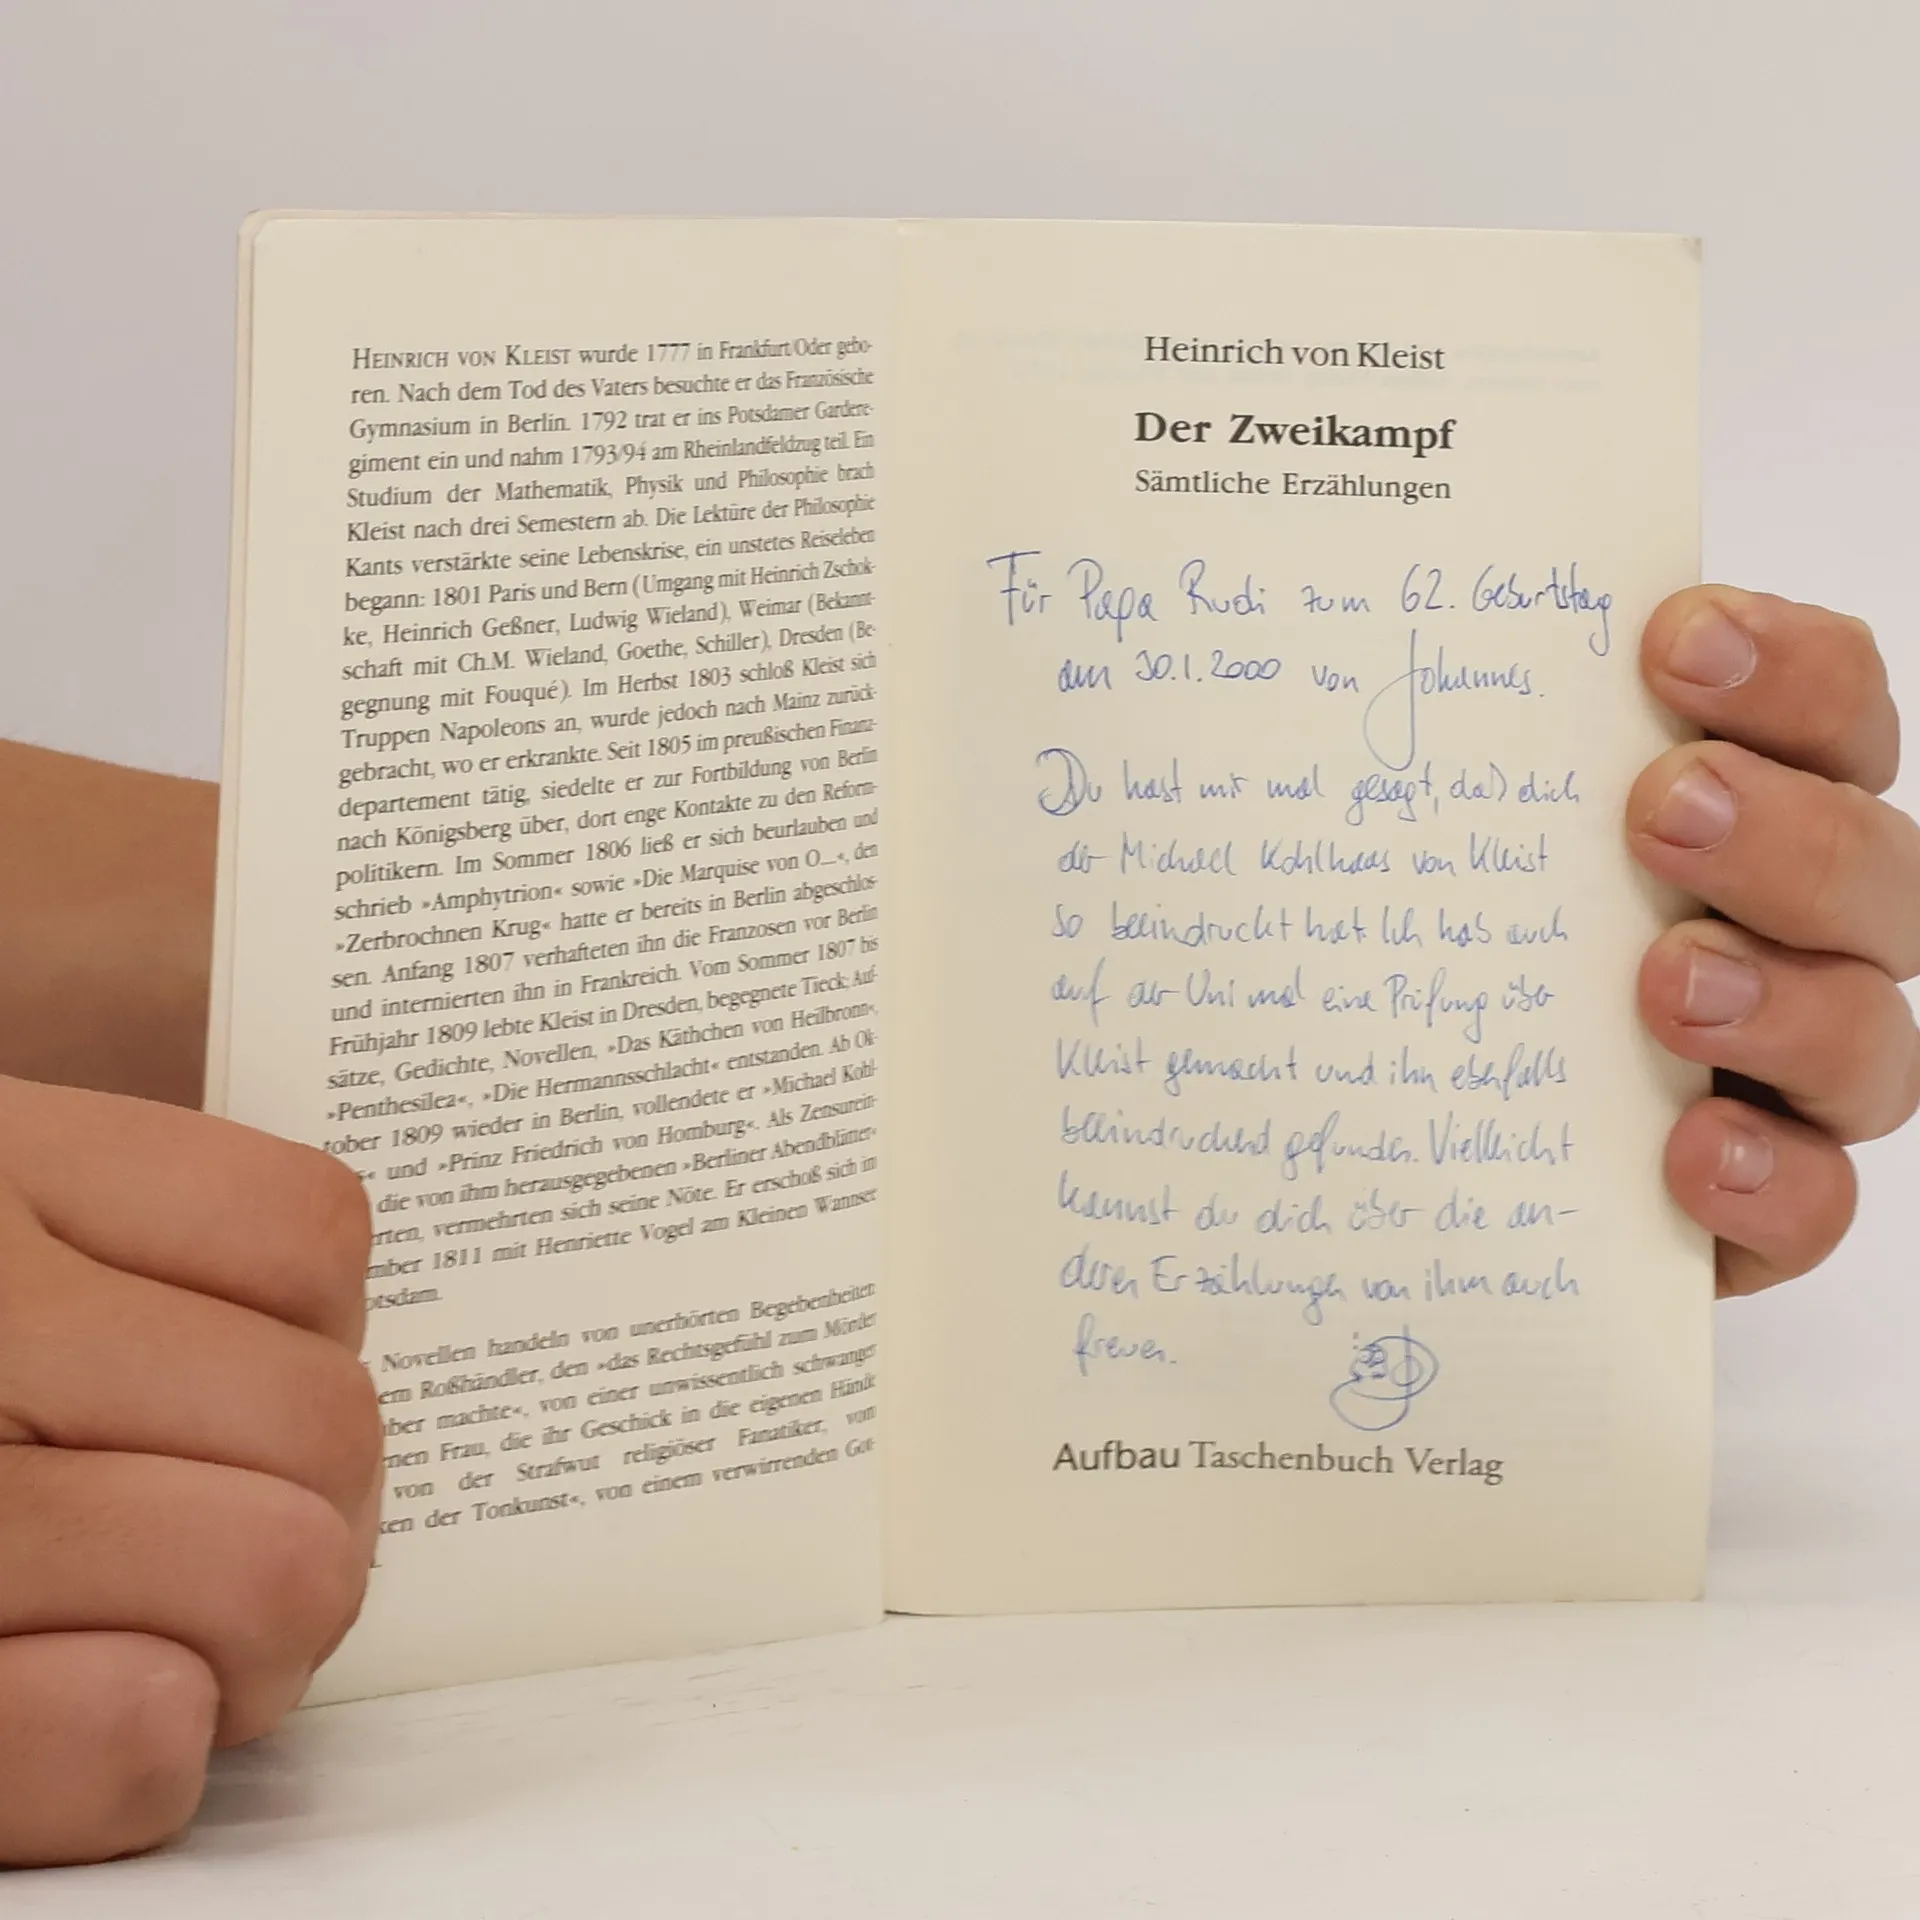 HEINRICH VON KLEIST wurde 1777 in Frankfurt/Oder gebo-
ren. Nach dem Tod des Vaters besuchte er das Französische
Gymnasium in Berlin. 1792 trat er ins Potsdamer Gardere-
giment ein und nahm 1793/94 am Rheinlandfeldzug teil. Ein
Studium der Mathematik, Physik und Philosophie brach
Kleist nach drei Semestern ab. Die Lektüre der Philosophie
Kants verstärkte seine Lebenskrise, ein unstetes Reiseleben
begann: 1801 Paris und Bern (Umgang mit Heinrich Zschok-
ke, Heinrich Geßner, Ludwig Wieland), Weimar (Bekannt-
schaft mit Ch.M. Wieland, Goethe, Schiller), Dresden (Be-
gegnung mit Fouqué). Im Herbst 1803 schloß Kleist sich
Truppen Napoleons an, wurde jedoch nach Mainz zurück-
gebracht, wo er erkrankte. Seit 1805 im preußischen Finanz-
departement tätig, siedelte er zur Fortbildung von Berlin
nach Königsberg über, dort enge Kontakte zu den Reform-
politikern. Im Sommer 1806 ließ er sich beurlauben und
schrieb »Amphytrion« sowie »Die Marquise von O...«, den
»Zerbrochnen Krug« hatte er bereits in Berlin abgeschlos-
sen. Anfang 1807 verhafteten ihn die Franzosen vor Berlin
und internierten ihn in Frankreich. Vom Sommer 1807 bis
Frühjahr 1809 lebte Kleist in Dresden, begegnete Tieck; Auf-
sätze, Gedichte, Novellen, »Das Käthchen von Heilbronn«,
»Penthesilea«, »Die Hermannsschlacht« entstanden. Ab Ok-
tober 1809 wieder in Berlin, vollendete er »Michael Kohl-
und »Prinz Friedrich von Homburg«. Als Zensurein-
die von ihm herausgegebenen »Berliner Abendblätter«
rten, vermehrten sich seine Nöte. Er erschoß sich im
mber 1811 mit Henriette Vogel am Kleinen Wannsee
otsdam.
Novellen handeln von unerhörten Begebenheiten
em Roßhändler, den »das Rechtsgefühl zum Mörder
ber machte«, von einer unwissentlich schwanger
nen Frau, die ihr Geschick in die eigenen Hände
von der Strafwut religiöser Fanatiker, von
ken der Tonkunst«, von einem verwirrenden Got-
Heinrich von Kleist
Der Zweikampf
Sämtliche Erzählungen
Für Papa Rudi zum 62. Geburtstag
am 30.1.2000 von Johannes.
Du hast mir mal gesagt, daß dich
der Michael Kohlhaas von Kleist
so beeindruckt hat. Ich hab auch
auf der Uni mal eine Prüfung über
Kleist gemacht und ihn ebenfalls
beeindruckend gefunden. Vielleicht
kannst du dich über die an-
deren Erzählungen von ihm auch
freuen.
Aufbau Taschenbuch Verlag